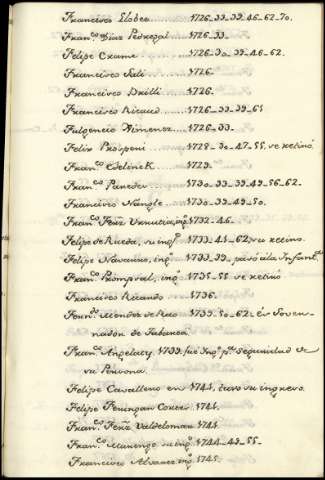 Francisco Llobet ...... 1726-33-39-46-62-70.
Fran.co Diaz Pedregal .. 1726-33-
Felipe Crame ....... 1726-30-39-46-62.
Francisco Sali ...... 1726-
Francisco ....... 1726-
Francisco Ricaud ..... 1726-33-39-61
Fulgencio Ximenez ..... 1726-33-
Felix Prosperi ....... 1728-30-47-55, se retiró
Fran.co Edelinck. 1729.
Fran.co Panedes ... 1730-33-39-49-56-62-
Francisco Nangle ... 1730-33-49-50.
Fran.co Fern.z Urrutia, ing.o 1732-46-
Felipe de Rueda, su ing.o 1733-41-62, se retiro.
Felipe Navarino, ing.o 1733-39- pasó a la Infant.a
Fran.co Promprat, ing.o 1735-55 se retiró
Francisco Ricardo 1736.
Fern.do Mendez de Rao 1739-50-62 es Governador de Tabasca.
Fran.co 1739. fue Ing.o p.a Seguridad de su Persona.
Felipe Cavallero en 1741, tuvo su ingreso.
Felipe Peningan Coxer 1741.
Fran.co Fern.z Valdeloman 1741.
Fran.co su ing.o 1744-49-55-
Francisco Alvarez ing.o 1745.